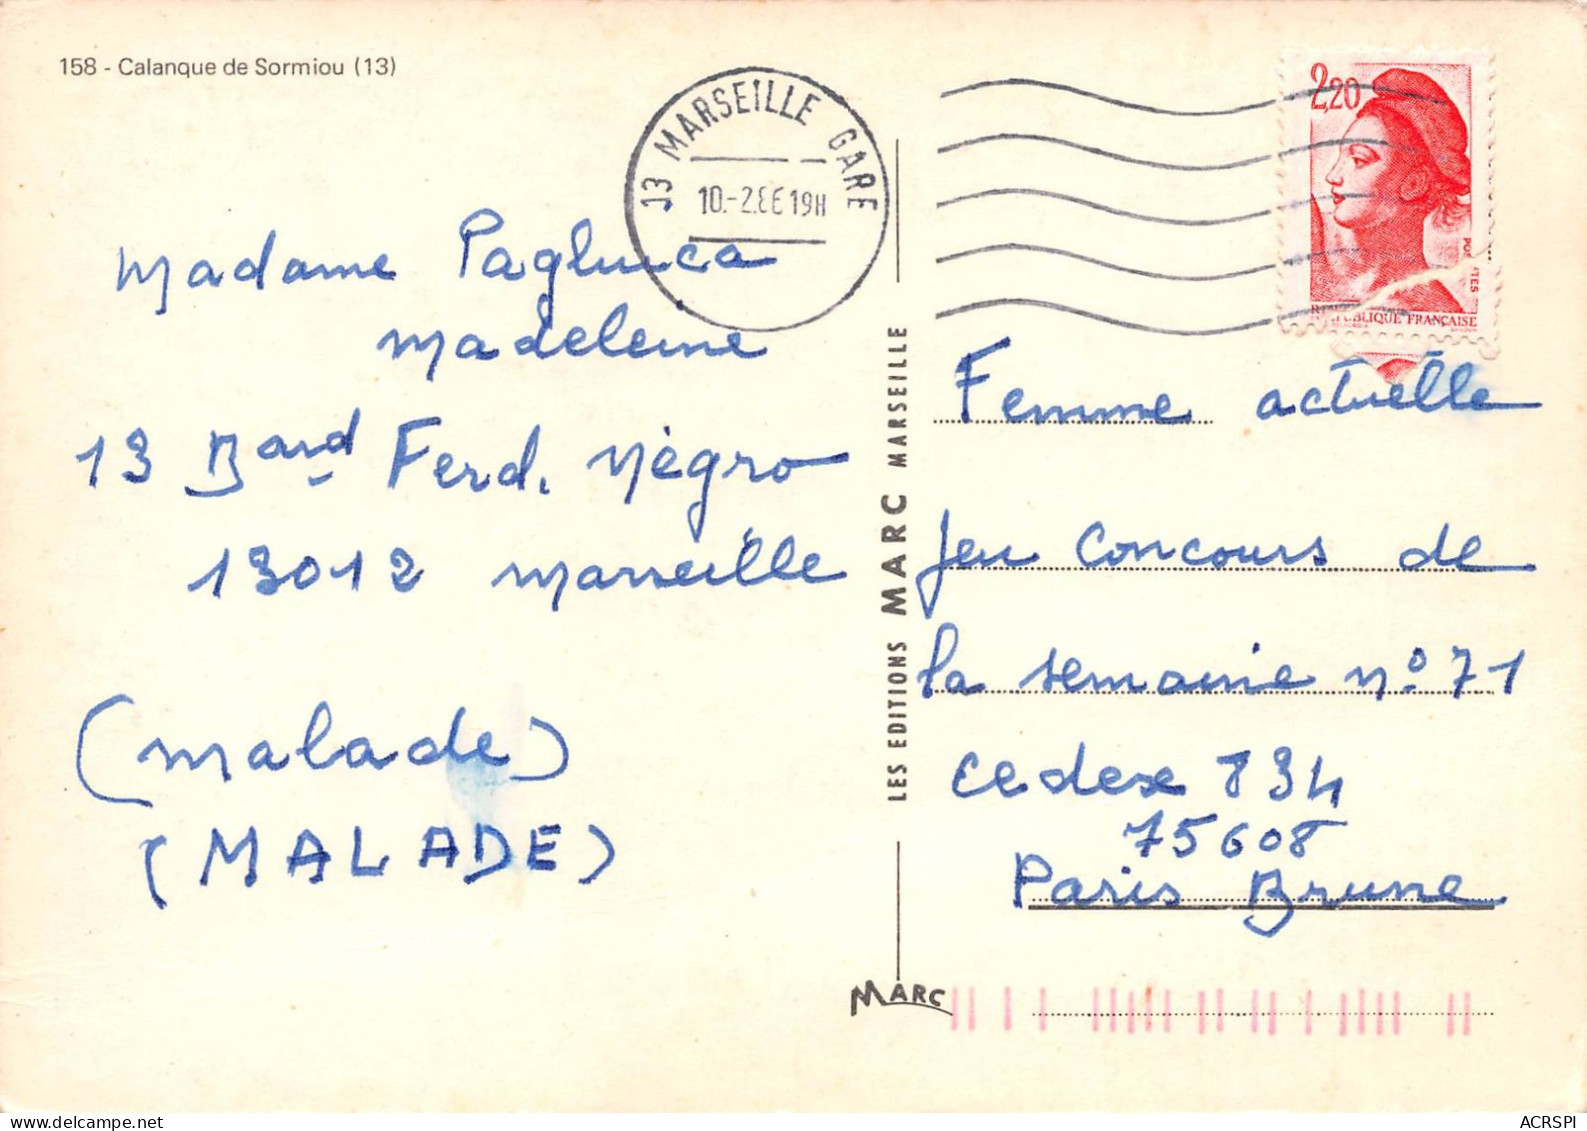 158 - Calanque de Sormiou (13)
13 MARSEILLE GARE
10.-2.86 19H
2,20
RÉPUBLIQUE FRANÇAISE
Madame Pagluica
Madeleine
13 Bard Ferd. Nègro
13012 Marseille
(malade)
(MALADE)
LES EDITIONS MARC MARSEILLE
Femme actuelle
Jeu Concours de
la semaine n° 71
Cedex 834
75608
Paris Brune
MARC
ACRSPI